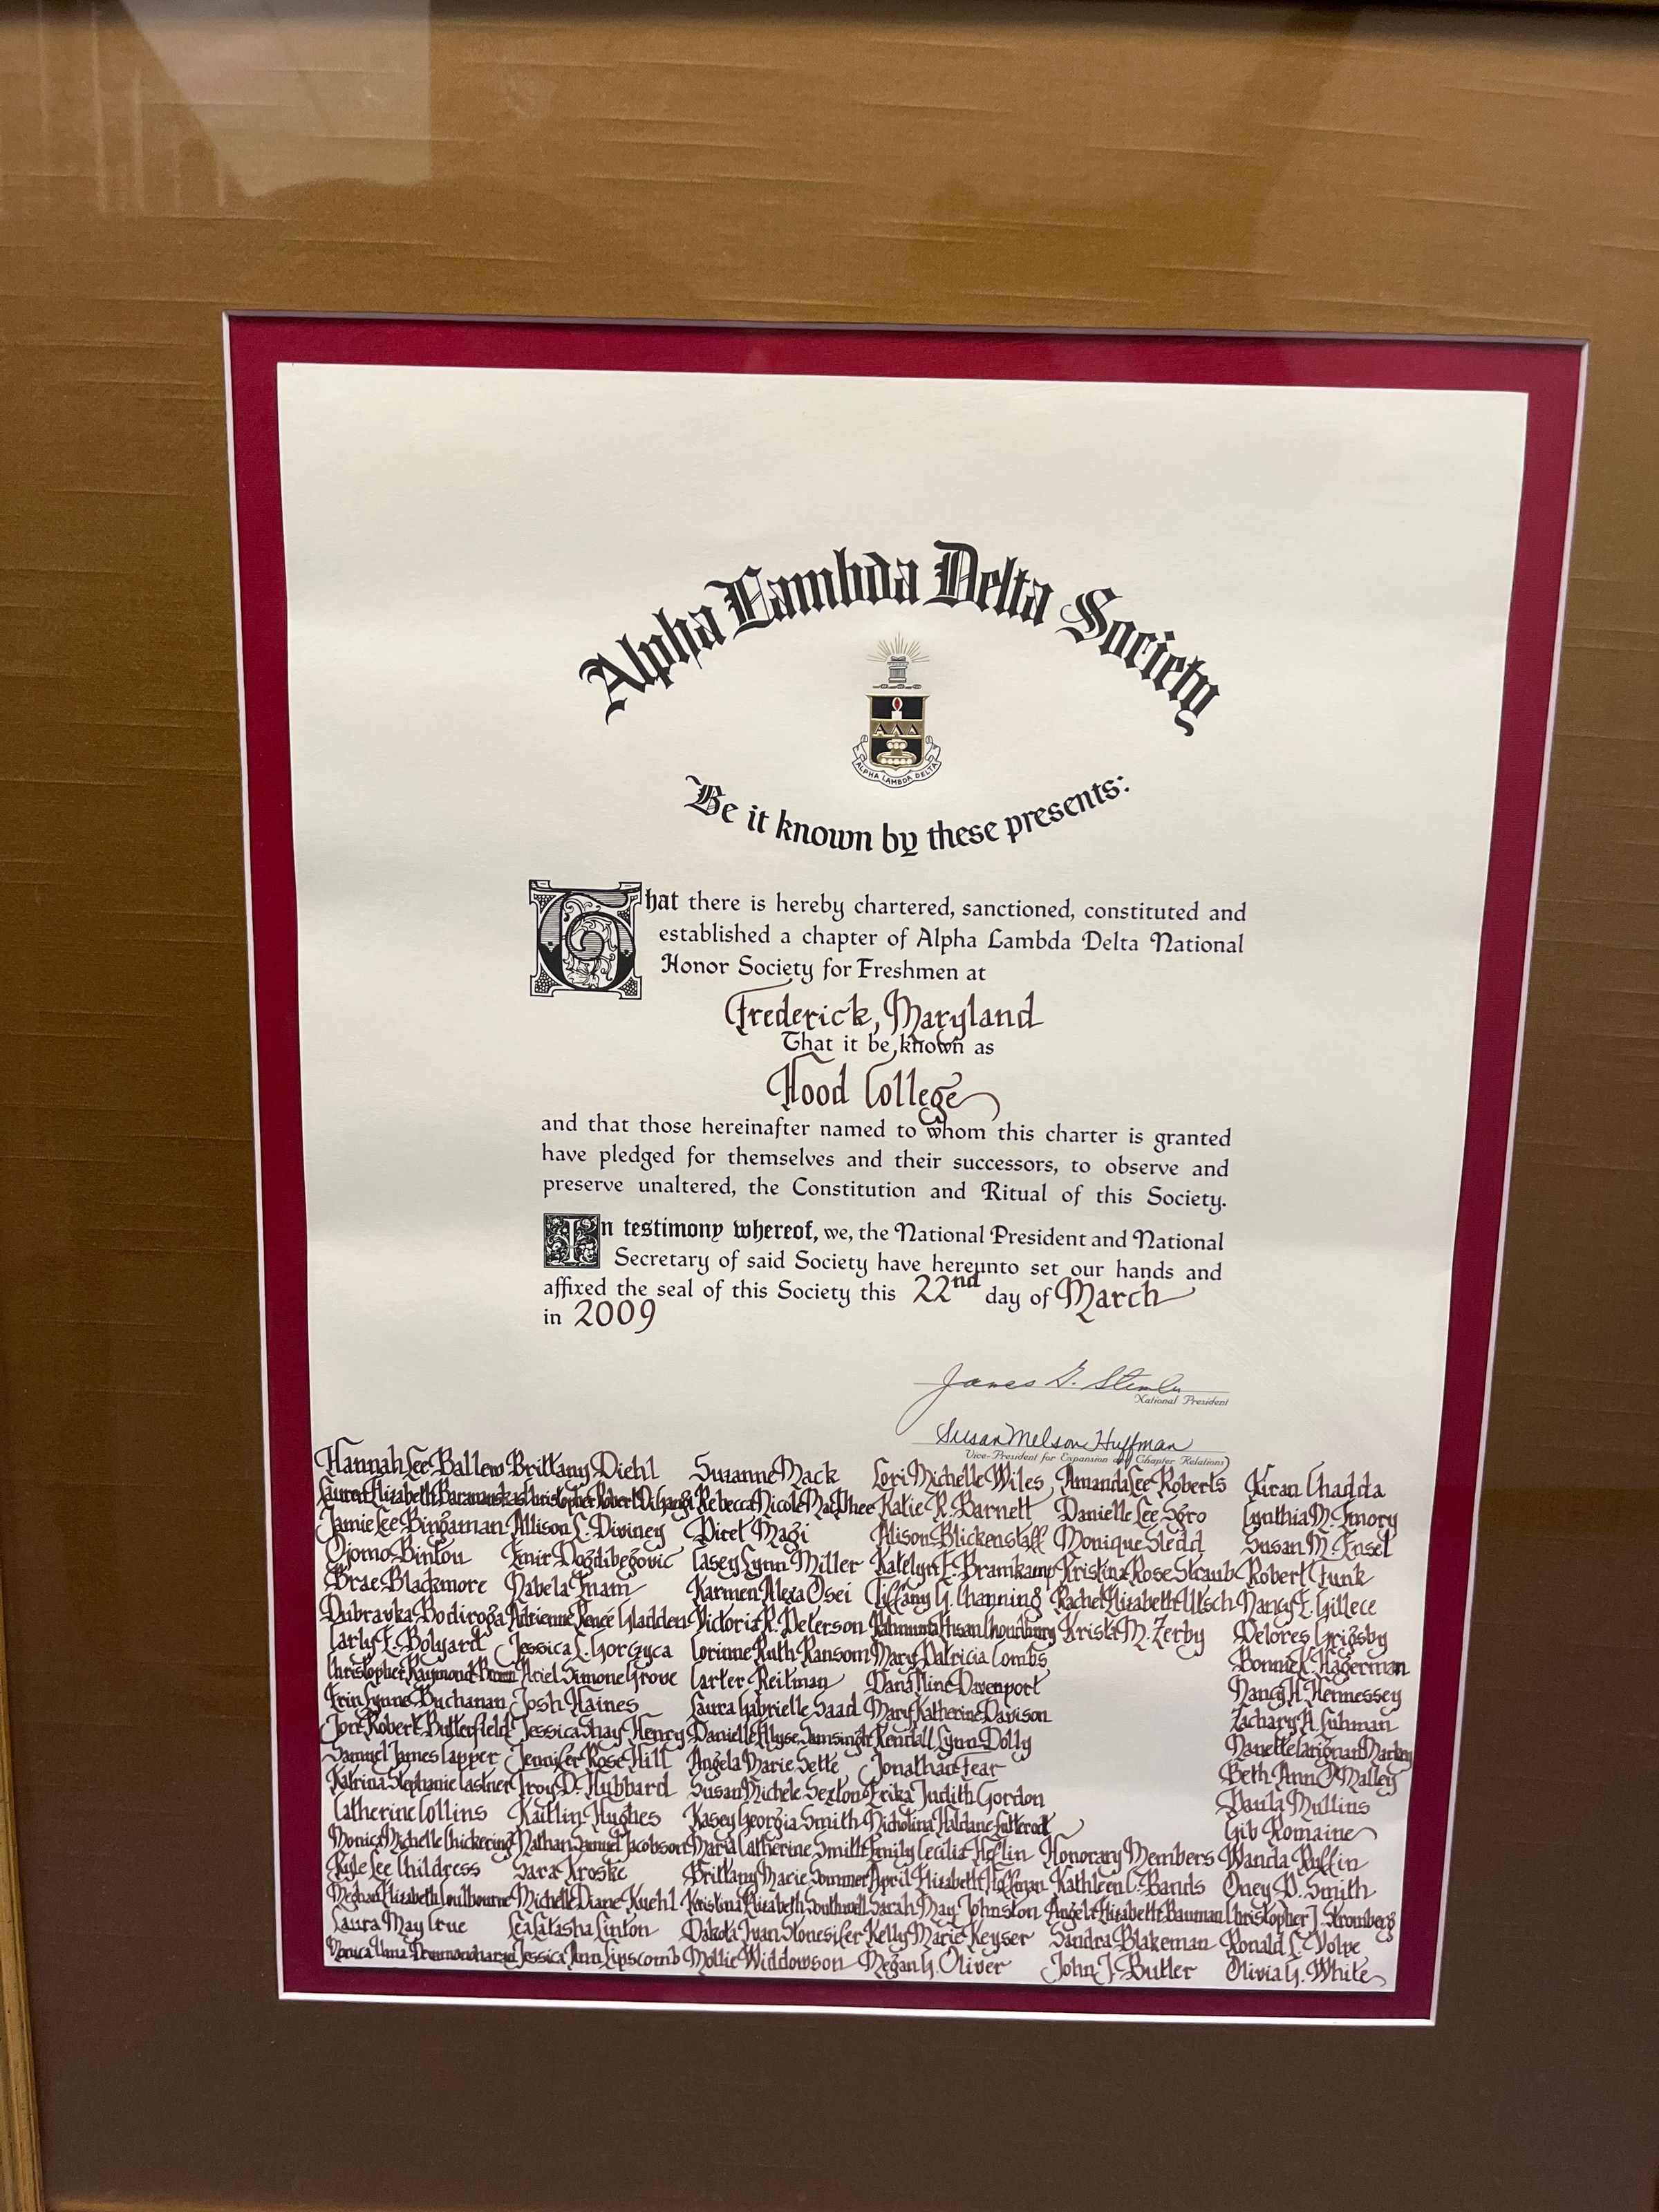 Alpha Lambda Delta Society
ΑΛΔ
ALPHA LAMBDA DELTA
Be it known by these presents:
That there is hereby chartered, sanctioned, constituted and
established a chapter of Alpha Lambda Delta National
Honor Society for Freshmen at
Frederick, Maryland
That it be known as
Hood College
and that those hereinafter named to whom this charter is granted
have pledged for themselves and their successors, to observe and
preserve unaltered, the Constitution and Ritual of this Society.
In testimony whereof, we, the National President and National
Secretary of said Society have hereunto set our hands and
affixed the seal of this Society this 22nd day of March
in 2009
James G. Stemler
National President
Susan Melson Huffman
Vice-President for Expansion and Chapter Relations)
Hannah Lee Ballew
Lauren Elizabeth
Jamie Lee Bingaman
Ojomo Binton
Brae Blackmore
Dubravka Bodiroga
Carly E. Bolyard
Christopher Raymond Brown
Erin Lynne Buchanan
Jon Robert Butterfield
Samuel James Capper
Katrina Stephanie Castner
Catherine Collins
Monica Michelle Chickering
Kyle Lee Childress
Meghan Elizabeth Coulbourne
Laura May Crue
Monica
Brittany Diehl
Christopher Robert
Allison L. Diviney
Emir Dogdibegovic
Nabela Enam
Adrienne Renee Gladden
Jessica L. Gorzyca
Ariel Simone Grove
Josh Haines
Jessica Shay Henry
Jennifer Rose Hill
Troy D. Hubbard
Kaitlin Hughes
Nathan Samuel Jacobson
Sara Kroske
Michelle Diane Kuehl
Lea Latasha Linton
Jessica Ann Lipscomb
Suzanne Mack
Rebecca Nicole MacPhee
Piret Magi
Casey Lynn Miller
Karmen Alexa Osei
Victoria R. Peterson
Corinne Ruth Ransom
Carter Reitman
Laura Gabrielle Saad
Danielle Alyse Samsingh
Angela Marie Sette
Susan Michele Sexton
Kasey Georgia Smith
Maria Catherine Smith
Brittany Macie Sommer
Kristina Elizabeth Southwell
Dakota Ivan Stonesifer
Mollie Widdowson
Lori Michelle Wiles
Katie R. Barnett
Alison Blickenstaff
Katelyn E. Bramkamp
Tiffany G. Channing
Rahnuma Ahsan Choudhury
Mary Patricia Combs
Dana Nine Davenport
Mary Katherine Davison
Kendall Lynn Dolly
Jonathan Fear
Erika Judith Gordon
Nicholina Haldane
Emily Cecilia Heflin
April Elizabeth Hoffman
Sarah May Johnston
Kelly Marie Keyser
Megan G. Oliver
Amanda Lee Roberts
Danielle Lee Sgro
Monique Sledd
Kristina Rose Straub
Rachel Elizabeth Utsch
Krista M. Zerby
Honorary Members
Kathleen C. Bands
Angela Elizabeth Bauman
Sandra Blakeman
John J. Butler
Kiran Chadda
Cynthia M. Emory
Susan M. Ensel
Robert Funk
Nancy E. Gillece
Delores Grigsby
Bonnie K. Hagerman
Nancy H. Hennessey
Zachary A. Luhman
Nanette Carignan Markey
Beth Ann O'Malley
Paula Mullins
Gib Romaine
Wanda Ruffin
Oney P. Smith
Christopher J. Stromberg
Ronald L. Volpe
Olivia G. White